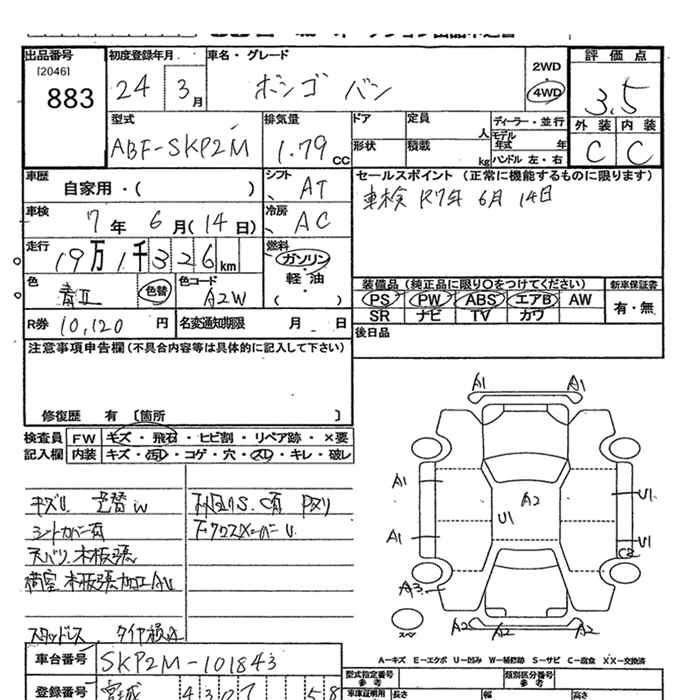 出品番号
[2046]
883
初度登録年月
24 3月
車名・グレード
ボンゴ バン
2WD
4WD
評価点
3.5
外装 内装
C C
型式
ABF-SKP2M
排気量
1.79 CC
ドア
形状
定員
人
積載
kg
ディーラー・並行
モデル年式 年
ハンドル 左・右
車歴
自家用・( )
シフト
AT
セールスポイント (正常に機能するものに限ります)
車検 R7年 6月 14日
車検
7年 6月(14日)
冷房
AC
走行
19万1千326km
燃料
ガソリン・
軽油・
( )
色
青II
色替
色コード
A2W
装備品 (純正品に限り〇をつけてください)
新車保証書
PS PW ABS エアB AW
SR ナビ TV カワ
有・無
R券 10,120 円
名変通知期限 月 日
後日品
注意事項申告欄 (不具合内容等は具体的に記入して下さい)
修復歴 有 [箇所 ]
検査員
記入欄
FW キズ・飛石・ヒビ割・リペア跡・×要
内装 キズ・汚レ・コゲ・穴・スレ・キレ・破レ
キズU 色替W
シートカバー有
天バリ 木板張
荷室 木板張加工AU
スタッドレス タイヤ損止
下クロスメンバーU
A1 A1
A1 U1
A2
U1
A1 U1
C2
A3
A2 A2 A2
スペア
A-キズ E-エクボ U-凹み W-補修跡 S-サビ C-腐食 XX-交換済
車台番号
SKP2M-101843
型式指定番号
参考
類別区分番号
参考
登録番号
宮城 430 58
車庫証明用
長さ 幅 高さ